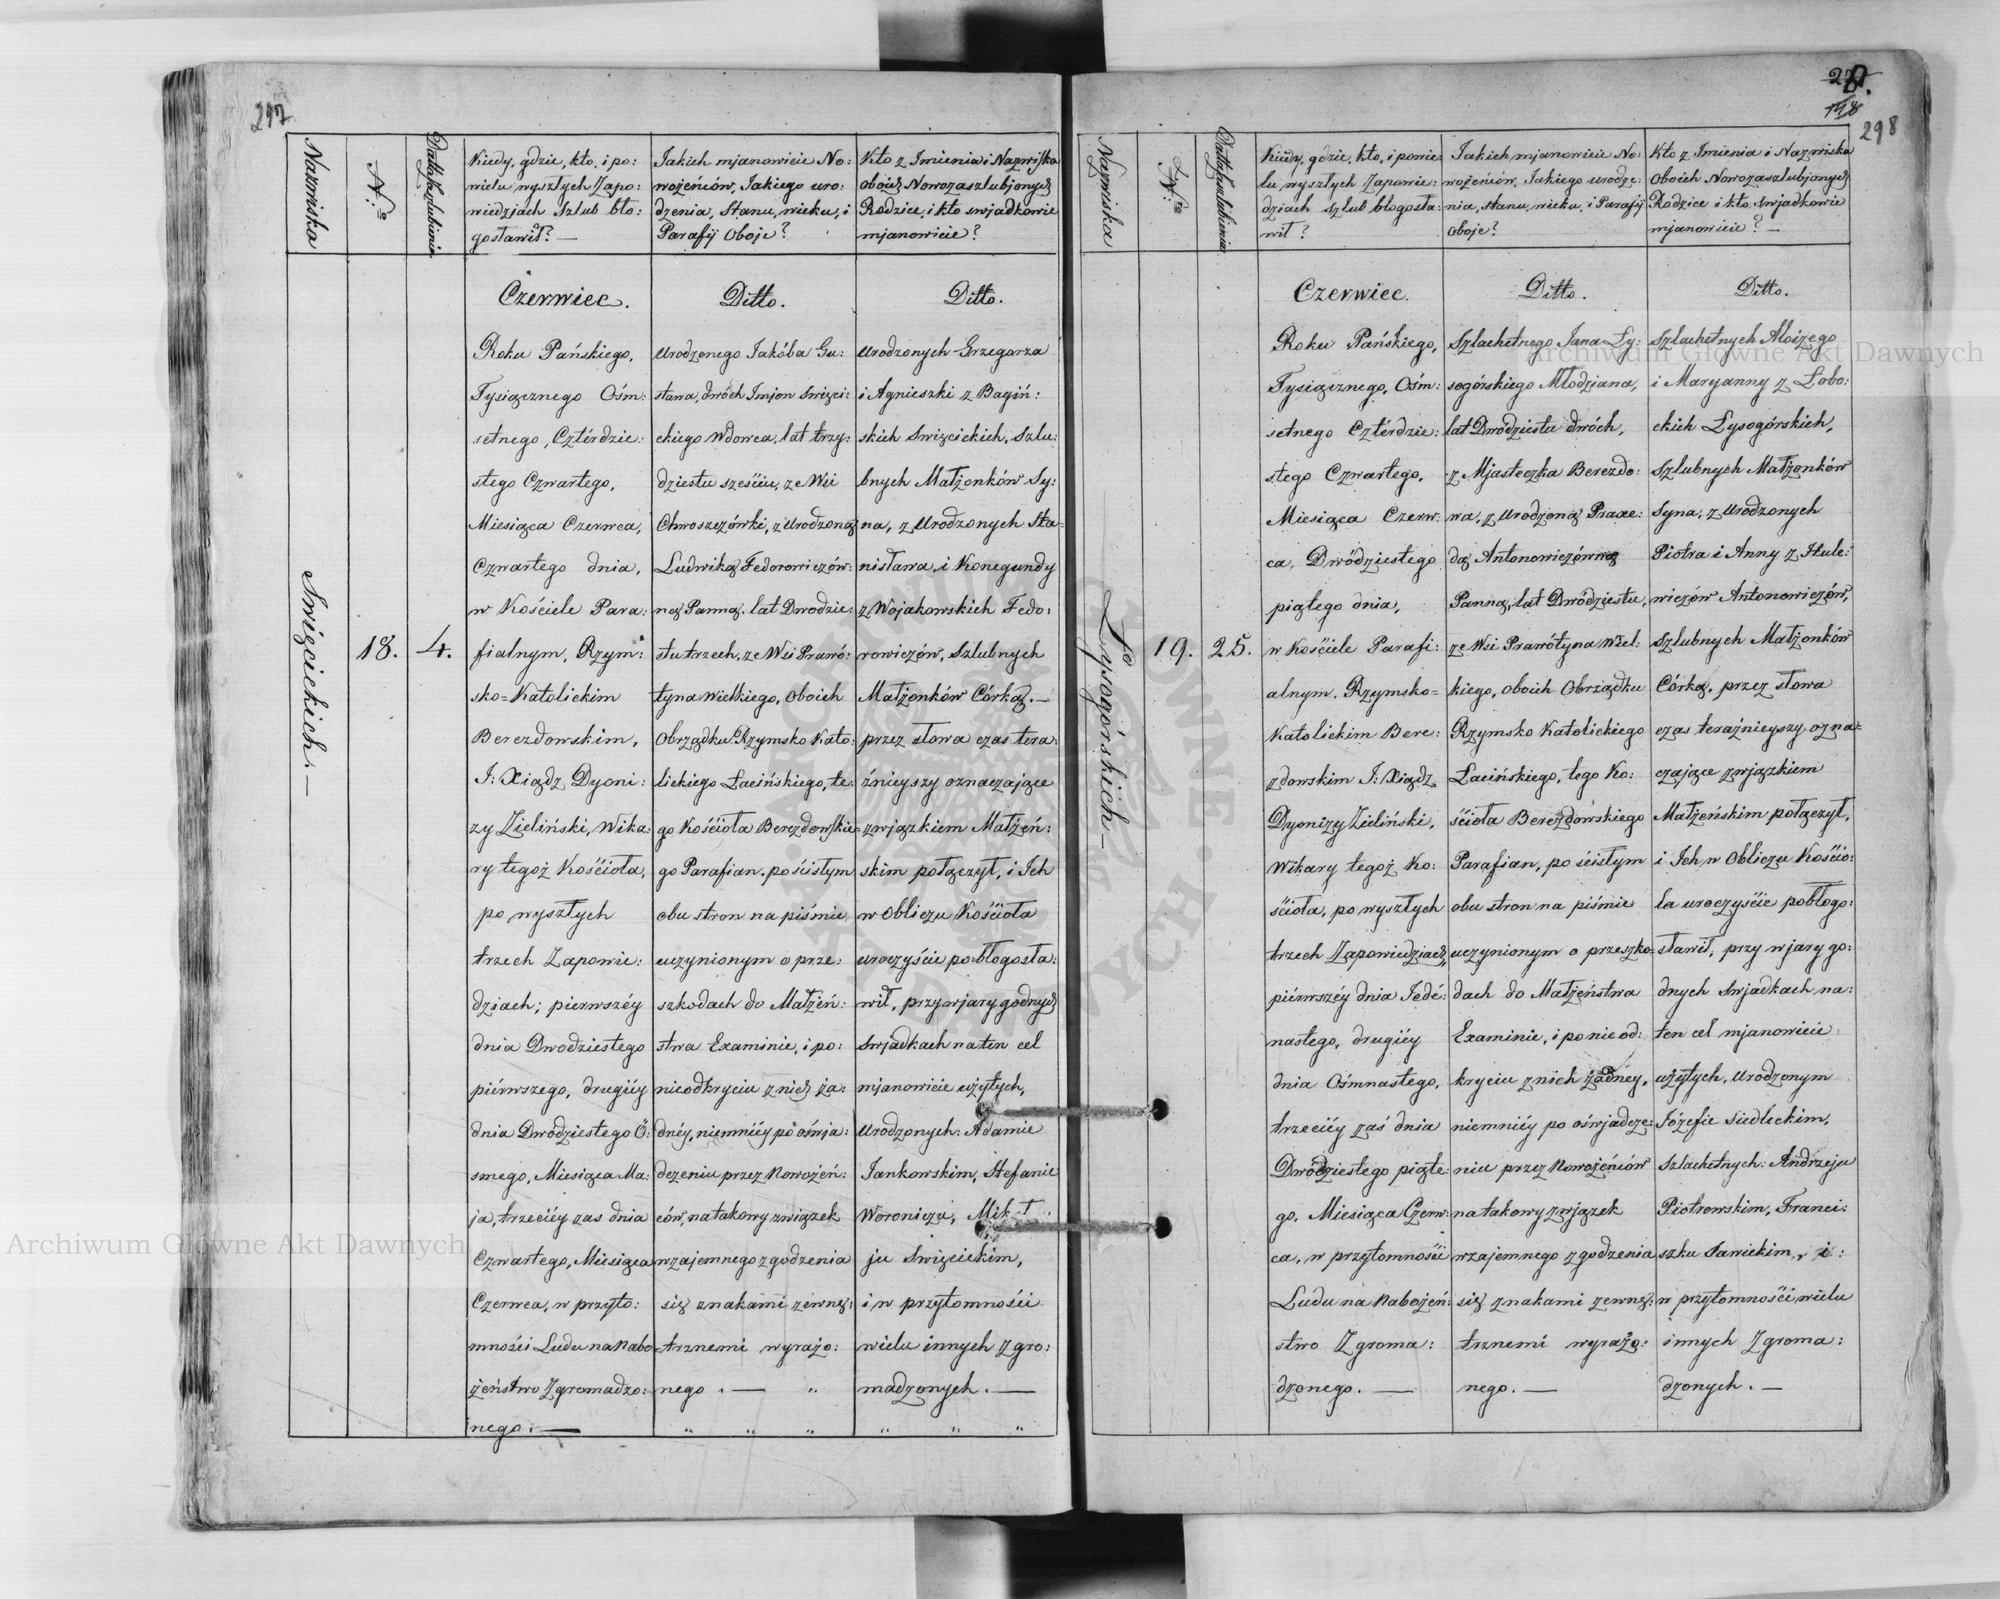 297
Nazwiska
N:o
Datta Zaślubienia
Kiedy, gdzie, kto, i po:
wielu wyszłych Zapo:
wiedziach Szlub bło:
gosławił? —
Jakich mjanowicie No:
wożeńców, Jakiego uro:
dzenia, Stanu, wieku, i
Parafij Oboje?
Kto z Imienia i Nazwiska
oboich Nowozaszlubjonych
Rodzice, i kto swjadkowie
mjanowicie?
Swięcickich. —
18.
4.
Czerwiec.
Roku Pańskiego,
Tysiącznego Ośm:
setnego, Cztérdzie:
stego Czwartego,
Miesiąca Czerwca,
Czwartego dnia,
w Kościele Para:
fialnym, Rzym:
sko=Katolickim
Berezdowskim,
J: Xiądz Dyoni:
zy Zieliński, Wika:
ry tegoż Kościoła,
po wyszłych
trzech Zapowie:
dziach; pierwszéy
dnia Dwodziestego
piérwszego, drugiéy
dnia Dwodziestego Ó:
smego, Miesiąca Ma:
ja, trzeciéy zas dnia
Czwartego, Miesiąca
Czerwca, w przyto:
mności Ludu na Nabo
żeństwo Zgromadzo:
nego. —
Ditto.
Urodzonego Jakóba Gu:
stawa, dwóch Imjon Swięci:
ckiego Wdowca, lat trzy:
dziestu sześciu, ze Wsi
Chwoszczówki, z Urodzoną
Ludwiką Fedorowiczów:
ną Panną, lat Dwodzie:
stu trzech, ze Wsi Prawó:
tyna Wielkiego, Oboich
Obrządku Rzymsko Kato:
lickiego Łacińskiego, te:
go Kościoła Berezdowskie=
go Parafian, po ścisłym
obu stron na piśmie
uczynionym o prze:
szkodach do Małżeń:
stwa Examinie, i po:
nieodkryciu z nich ża:
dnéy, niemniéy po oświa:
dczeniu przez Nowożeń:
ców, na takowy związek
wzajemnego zgodzenia
się znakami zewnę:
trznemi wyrażo:
nego. — "
" " "
Ditto.
Urodzonych Grzegorza
i Agnieszki z Bagiń:
skich Swięcickich, Szlu:
bnych Małżonków Sy:
na, z Urodzonych Sta=
nisława, i Konegundy
z Wojakowskich Fedo:
rowiczów, Szlubnych
Małżonków Córką. —
przez słowa czas tera:
źnieyszy oznaczające
zwjązkiem Małżeń:
skim połączył, i Ich
w Obliczu Kościoła
uroczyście pobłogosła:
wił, przy wjary godnych
Swjadkach na ten cel
mjanowicie użytych,
Urodzonych: Adamie
Jankowskim, Stefanie
Woroniczu,
ju Swięcickim,
i w przytomności
wielu innych Zgro:
madzonych. —
" " "
298
Nazwiska
N:o
Datta Zaślubienia
Kiedy, gdzie, kto, i powie:
lu wyszłych Zapowie:
dziach szlub błogosła:
wił?
Jakich mjanowicie No:
wożeńców, Jakiego urodze:
nia, stanu, wieku, i Parafij
oboje?
Kto z Imienia i Nazwiska
Oboich Nowozaszlubjonych
Rodzice i kto swjadkowie
mjanowicie? —
Łysogórskich —
19.
25.
Czerwiec.
Roku Pańskiego,
Tysiącznego, Ośm:
setnego Cztérdzie:
stego Czwartego,
Miesiąca Czerw:
ca, Dwódziestego
piątego dnia,
w Kościele Parafi:
alnym, Rzymsko=
Katolickim Bere:
zdowskim J: Xiądz
Dyonizy Zieliński,
Wikary tegoż Ko:
ścioła, po wyszłych
trzech Zapowiedziach,
piérwszéy dnia Jedé:
nastego, drugiéy
dnia Ośmnastego,
trzeciéy zaś dnia
Dwódziestego piąte
go, Miesiąca Czerw:
ca, w przytomności
Ludu na Nabożeń:
stwo Zgroma:
dzonego. —
Ditto.
Szlachetnego Jana Ły:
sogórskiego Młodziana,
lat Dwodziestu dwóch,
z Mjasteczka Berezdo:
wa, z Urodzoną Praxe:
dą Antonowiczówną
Panną, lat Dwódziestu,
ze Wsi Prawótyna Wiel:
kiego, oboich Obrządku
Rzymsko Katolickiego
Łacińskiego, tego Ko:
ścioła Berezdowskiego
Parafian, po ścisłym
obu stron na piśmie
uczynionym o przeszko=
dach do Małżeństwa
Examinie, i po nieod:
kryciu z nich żadnéy,
niemniéy po oświadcze:
niu przez Nowożeńców
na takowy zwjązek
wzajemnego zgodzenia
się znakami zewnę:
trznemi wyrażo:
nego. —
Ditto.
Szlachetnych Aloizego
i Maryanny z Łobo:
ckich Łysogórskich,
Szlubnych Małżonków
Syna, z Urodzonych
Piotra i Anny z Hule:
wiczów Antonowiczów,
Szlubnych Małżonków
Córką, przez słowa
czas teraźnieyszy ozna=
czające zwjązkiem
Małżeńskim połączył,
i Ich w Obliczu Kościo:
ła uroczyście pobłogo:
sławił, przy wjary go:
dnych Swjadkach na:
ten cel mjanowicie
użytych, Urodzonym
Józefie Siedleckim,
Szlachetnych: Andrzeju
Piotrowskim, Franci:
szku Sawickim, i:
w przytomności wielu
innych Zgroma:
dzonych. —
Archiwum Główne Akt Dawnych
Archiwum Główne Akt Dawnych